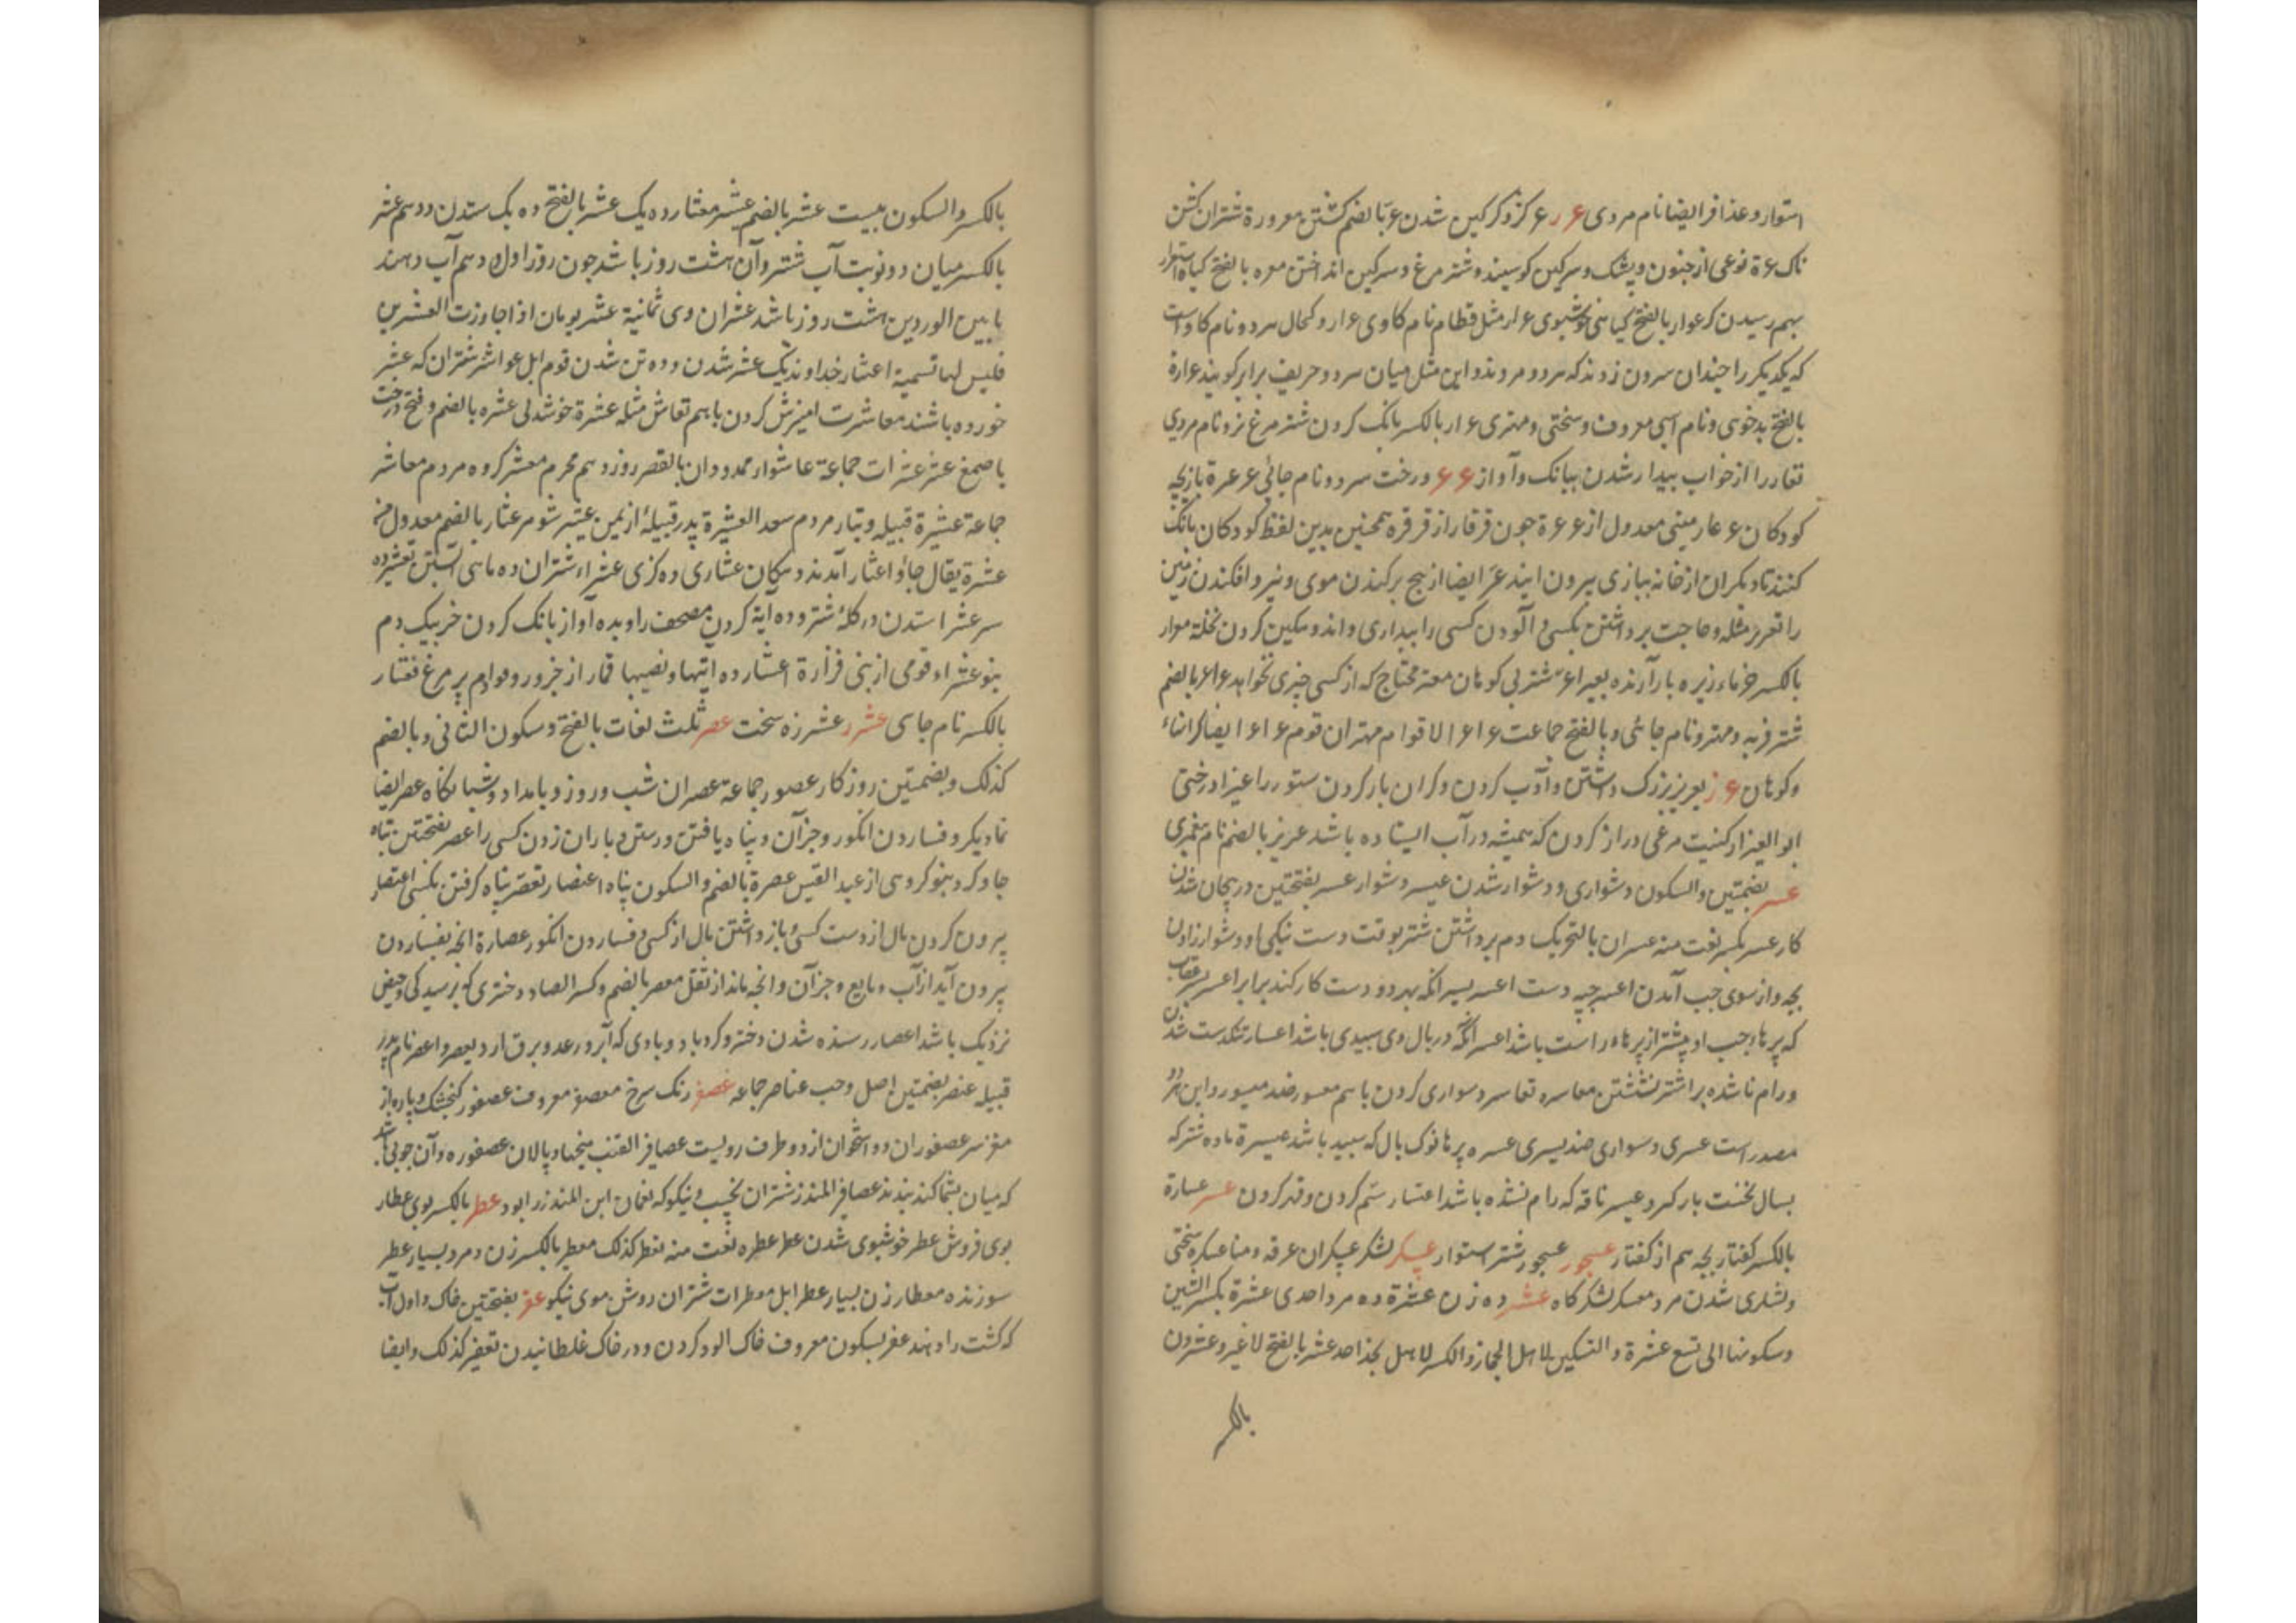 استوار و عذافر ایضا نام مردی عرر عر کزو کرکین شدن عر بالضم کشتن معرورة شتران کشن
ناک عرة نوعی از جنون و پشک و سرکین کوسپند و شتر مرغ و سرکین انداختن معره بالفتح کیاه استوار
بهم رسیدن کر عرار بالفتح کیاهی خوشبوی عرار مثل قطام نام کاوی عرار و کحال هر دو نام کاو است
که یکدیکر را چندان سرون زدند که هر دو مردند و این مثل میان هر دو حریف برابر کویند عرارة
بالفتح بدخوئی و نام اسپی معروف و سختی و مهتری عرار بالکسر بانک کردن شتر مرغ نر و نام مردی
تعارر از خواب بیدار شدن ببانک و آواز عرعر درخت سرو و نام جائی عرعرة بازیچه
کودکان عرعار مبنی معدول از عرعرة چون قرقار از قرقره همچنین بدین لفظ کودکان بانک
کنند تا دیکران از خانه ببازی بیرون ایند عر ایضا از بیخ برکندن موی و نیرو افکندن زمین
را تعرر مثله و حاجت برداشتن بکسی و آلودن کسی را ببداری و اندوهکین کردن نخلة معرار
بالکسر خرماء زیره بار آرنده بعیر اعر شتر بی کوهان معتر محتاج که از کسی چیزی نخواهد عراعر بالضم
شتر فربه و مهتر و نام جائی و بالفتح جماعت عراعر الاقوام مهتران قوم عراعر ایضا کرانهاء
و کوهان عزر تعزیر بزرک داشتن و ادب کردن و کران بار کردن ستور را عیزار درختی
ابو العیزار کنیت مرغی دراز کردن که همیشه در آب ایستاده باشد عزیر بالضم نام پیغمبری
عسر بضمتین و السکون دشواری و دشوار شدن عسیر دشوار عسر بفتحتین در پیچان شدن
کار عسر بکسر نعت منه عسران بالتحریک دم برداشتن شتر بوقت دست نیکی او دشوار زادن
بچه و از سوی چپ آمدن اعسر چپه دست اعسر یسر انکه بهر دو دست کار کند برابر اعسر عقاب
که پرهاء چپ او بیشتر از پرهاء راست باشد اعسر آنکه در بال وی سپیدی باشد اعسار تنکدست شدن
و رام ناشده بر اشتر نشستن معاسره تعاسر دسواری کردن باهم معسور ضد میسور و این هر دو
مصدر است عسری دسواری ضد یسری عسره پرها نوک بال که سپید باشد عسیرة ماده شتر که
بسال نخست بار کیرد عسیر ناقه که رام نشده باشد اعتسار ستم کردن و قهر کردن عسبر عسبارة
بالکسر کفتار بچه هم از کفتار عسجور عسجور شتر استوار عسکر لشکر عسکران عرفه و منا عسکره سختی
و لشکری شدن مرد معسکر لشکرکاه عشر ده زن عشرة ده مرد احدی عشرة بکسر الشین
و سکونها الی تسع عشرة و التسکین لاهل الحجاز و الکسر لاهل نجد احد عشر بالفتح لا غیر و عشرون
بالکسر
بالکسر و السکون بیست عشر بالضم عشیر معشار ده یک عشر بالفتح ده یک ستدن و دهم عشر
بالکسر میان دو نوبت آب شتر و آن هشت روز باشد چون روز اول و دهم آب دهند
ما بین الوردین هشت روز باشد عشران وی ثمانیة عشر یومان اذا جاوزت العشرین
فلیس لها تسمیة اعشار خداوند یک عشر شدن و ده تن شدن قوم ابل عواشر شتران که عشر
خورده باشند معاشرت امیزش کردن باهم تعاشر مثله عشرة خوشدلی عشره بالضم و فتح درخت
با صمغ عشر عشرات جماعة عاشورا ممدودا و بالقصر روز دهم محرم معشر کروه مردم معاشر
جماعة عشیرة قبیله و تبار مردم سعد العشیرة پدر قبیلهٔ از یمن عشیر شوهر عشار بالضم معدول من
عشرة یقال جاؤا عشار آمدند دهکان عشاری ده کزی عشراء شتران ده ماهی آبستن تعشیر ده
سر عشر استدن در کلهٔ شتر و ده آیة کردن مصحف را و بده آواز بانک کردن خر بیک دم
بنو عشراء قومی از بنی فزارة اعشار ده ایتها و نصیبها قمار از جزور و قوادم پر مرغ قعشار
بالکسر نام جای عشرر عشرزه سخت عصر ثلث لغات بالفتح و سکون الثانی و بالضم
کذلک و بضمتین روزکار عصور جماعة عصران شب و روز و بامداد و شبانکاه عصر ایضا
نماز دیکر و فساردن انکور و جز آن و پناه یافتن و رستن و باران زدن کسی را عصر بفتحتین پناه
جا و کرد و بنو کروهی از عبد القیس عصرة بالضم و السکون پناه اعتصار تعصر پناه کرفتن بکسی اعتصار
بیرون کردن مال از دست کسی و باز داشتن مال از کسی و فساردن انکور عصارة انچه بفساردن
بیرون آید از آب و مایع و جز آن و انچه ماند از ثقل معصر بالضم و کسر الصاد دختری که برسیدکی و حیض
نزدیک باشد اعصار رسنده شدن دختر و کردباد و بادی که ابر و رعد و برق ارد یعصر و اعصر نام پدر
قبیله عنصر بضمتین اصل و حب عناصر جماعه عصفر رنک سرخ معصفر معروف عصفور کنجشک و پاره از
مغز سر عصفوران دو استخوان از دو طرف روی است عصافیر القتب میخهاء پالان عصفوره آن چوبی باشد
که میان بشما کند بندند عصافیر المنذر شتران نجیب و نیکو که نعمان ابن المنذر را بود عطر بالکسر بوی عطار
بوی فروش عطر خوشبوی شدن عطر عطره نعت منه تعطر کذلک معطیر بالکسر زن و مرد بسیار عطر
سوزنده معطار زن بسیار عطر ابل معطرات شتران روشن موی نیکو عفر بفتحتین خاک و اول آب
که کشت را دهند عفر بسکون معروف خاک الود کردن و در خاک غلطانیدن تعفیر کذلک و ایضا